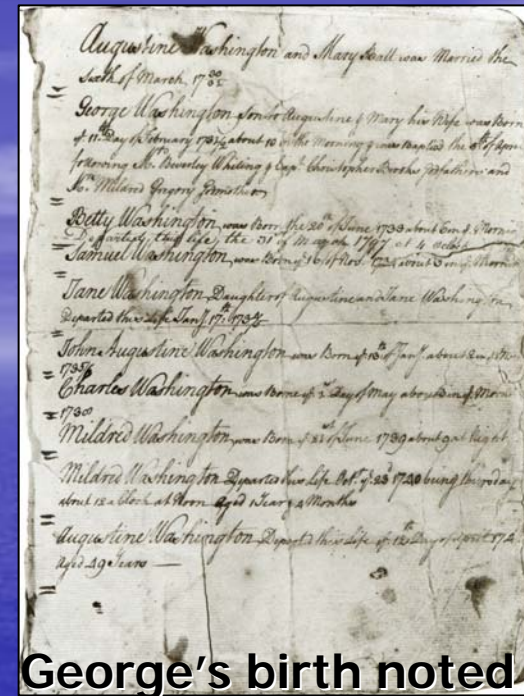 Augustine Washington and Mary Ball was Married the
Sixth of March 17 30/31
George Washington Son to Augustine & Mary his Wife was Born
yᵉ 11th Day of February 1731/2 about 10 in the Morning & was Baptised the 5th of April
following Mr. Beverley Whiting & Capt Christopher Brooks Godfathers and
Mrs. Mildred Gregory Godmother
Betty Washington was Born the 20th of June 1733 about 6 in yᵉ Morning
Departed this life the 31st of March 1797 at 4 oClock
Samuel Washington was Born yᵉ 16 of Nov. 1734 about 3 in yᵉ Morning
Jane Washington Daughter of Augustine and Jane Washington
Departed this Life Jany. 17th 1734/5
John Augustine Washington was Born yᵉ 13th of Jany. about 2 in yᵉ Morn
1735/6
Charles Washington was Borne yᵉ 2 Day of May about 3 in yᵉ Morn
1738
Mildred Washington was Born yᵉ 21st of June 1739 about 9 at Night
Mildred Washington Departed this Life Octr. yᵉ 23d 1740 being Thursday
about 12 a Clock at Noon Aged 1 Year & 4 Months
Augustine Washington Departed this Life yᵉ 12th Day of April 174
Aged 49 Years
George's birth noted